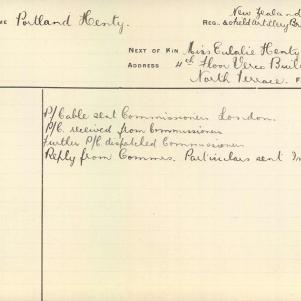 ME Portland Henty.
New Zealand
REG. & Field Artillery Br
NEXT OF KIN Miss Eulalie Henty
ADDRESS 4th Floor Verco Buil
North Terrace. F
P/Cable sent Commissioners London.
P/C. received from Commissioners
Further P/C dispatched Commissioners
Reply from Commrs. Particulars sent In